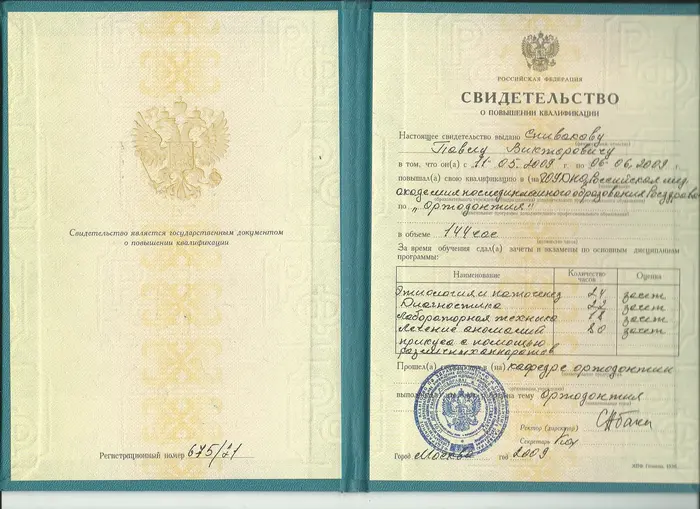 Свидетельство является государственным документом
о повышении квалификации
Регистрационный номер 675/21
РОССИЙСКАЯ ФЕДЕРАЦИЯ
СВИДЕТЕЛЬСТВО
О ПОВЫШЕНИИ КВАЛИФИКАЦИИ
Настоящее свидетельство выдано Спивакову
Павлу Викторовичу
в том, что он(а) с 11.05.2009 г. по 06.06.2009 г.
повышал(а) свою квалификацию в (на) ГОУДПО Российская мед.
академия последипломного образования Росздрава
по „Ортодонтия"
в объеме 144 час
За время обучения сдал(а) зачеты и экзамены по основным дисциплинам
программы:
Наименование Количество часов Оценка
Этиология и патогенез 24 зачет
Диагностика 22 зачет
Лабораторная техника 18 зачет
Лечение аномалий 80 зачет
прикуса с помощью
различных аппаратов
Прошел(а) в (на) кафедре ортодонтии
на тему Ортодонтия
Ректор (директор)
Секретарь
Город Москва год 2009